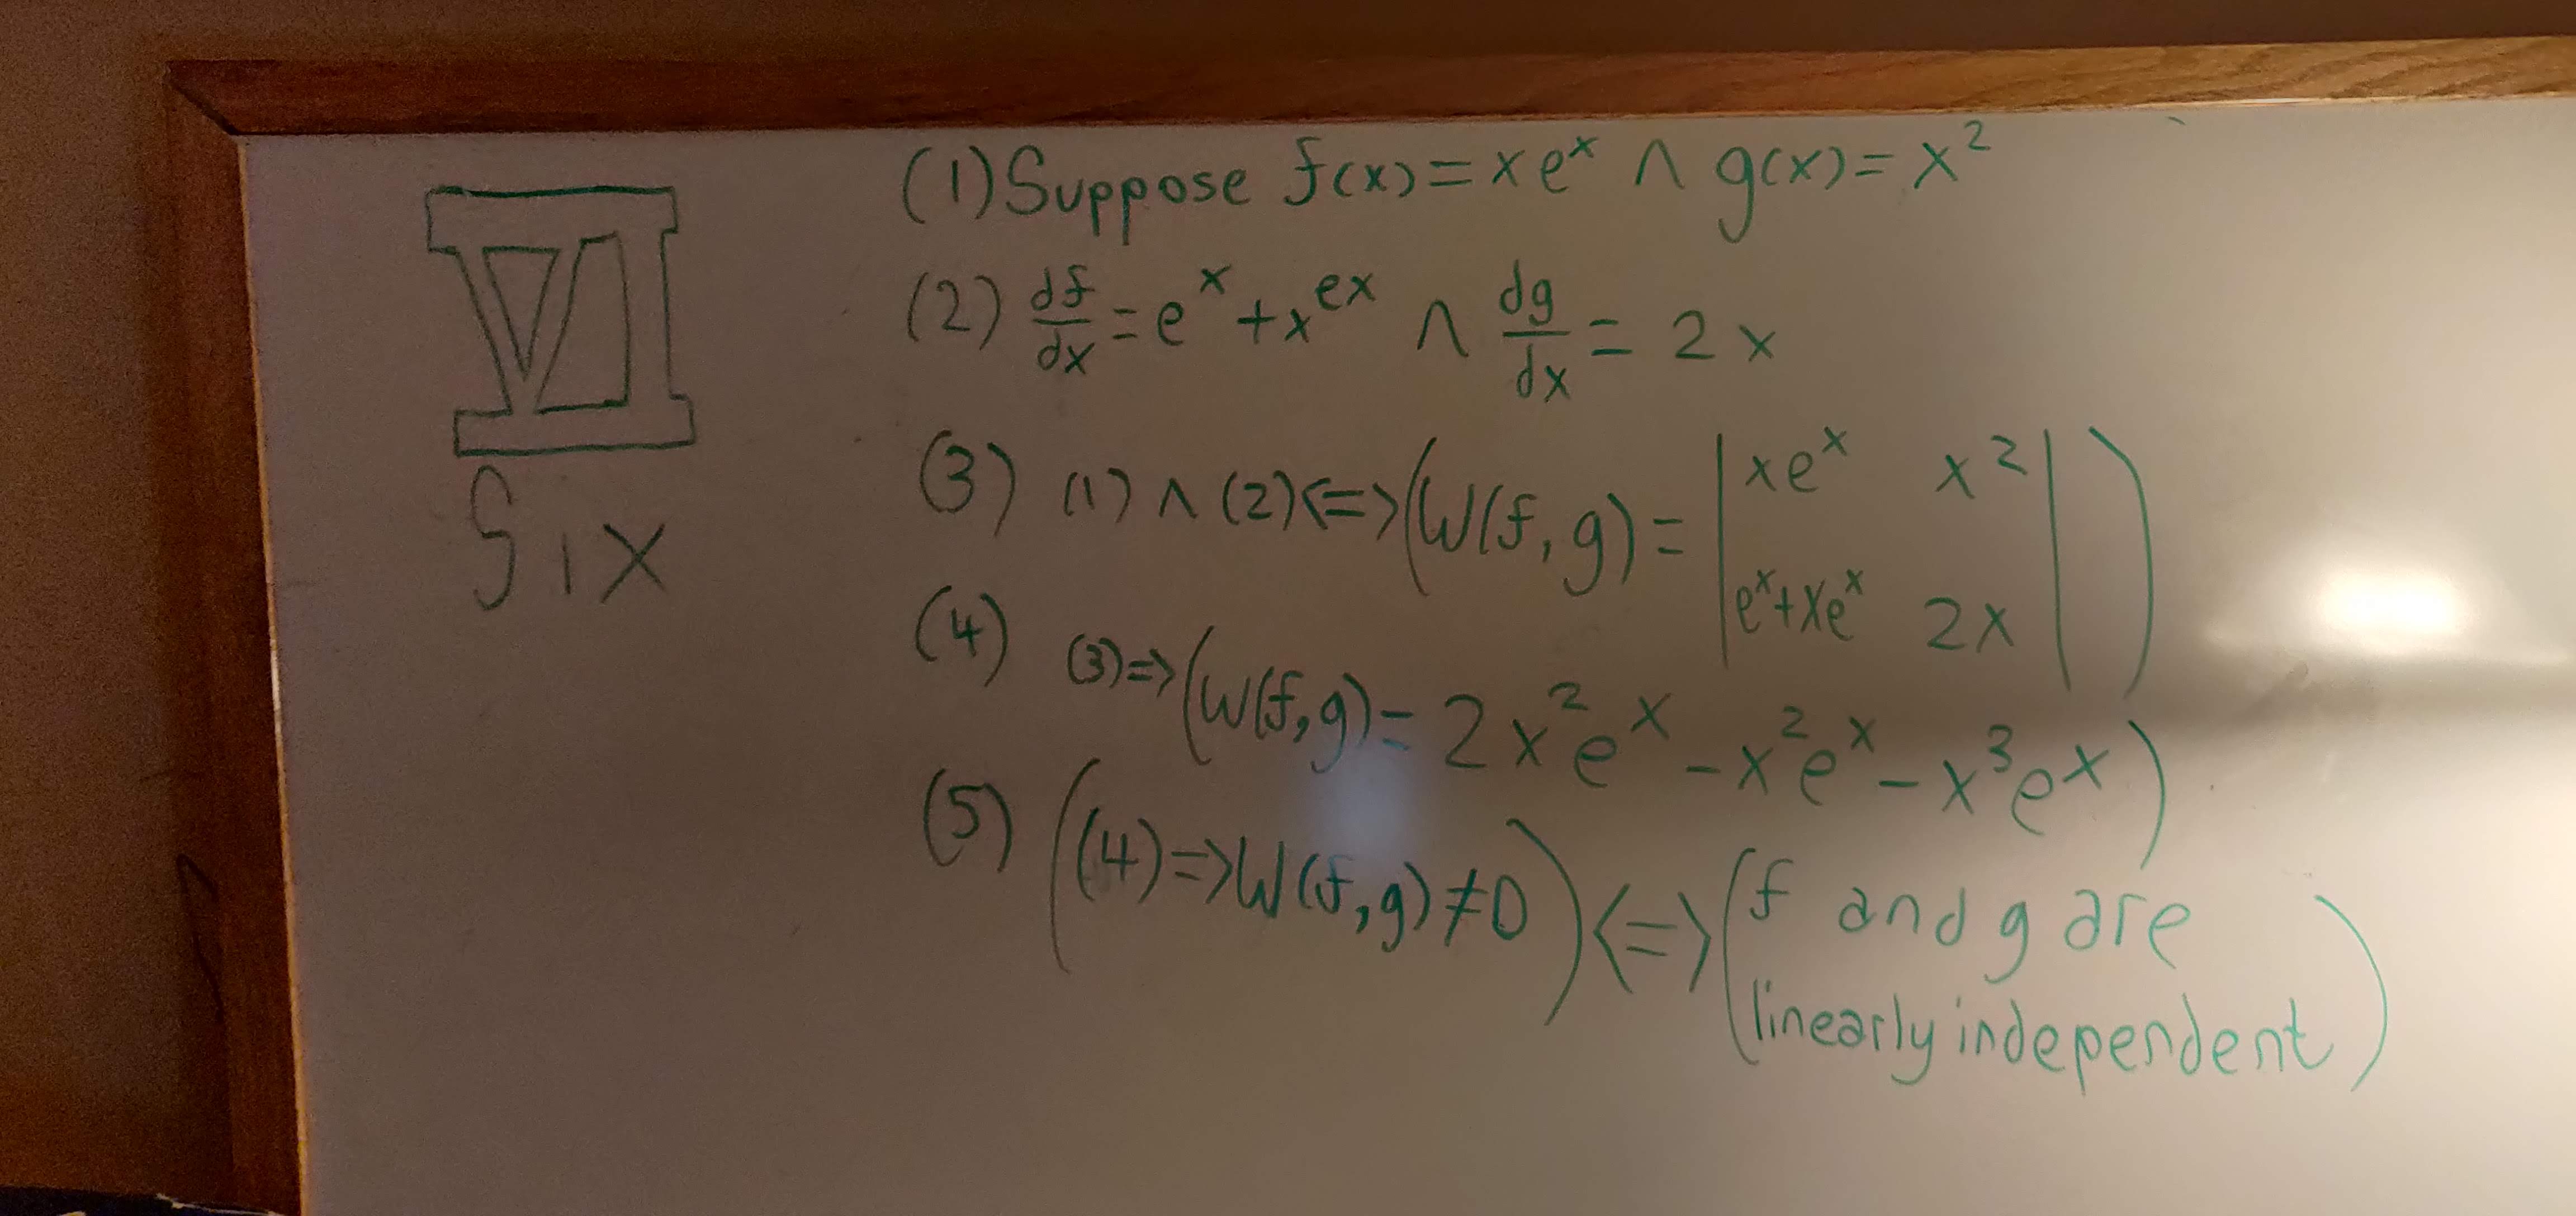 VI
Six
(1) Suppose f(x) = xe^x ∧ g(x) = x^2
(2) df/dx = e^x + x^ex ∧ dg/dx = 2x
(3) (1) ∧ (2) <=> (W(f, g) = | xe^x x^2 |
| e^x+xe^x 2x | )
(4) (3) => (W(f, g) = 2x^2e^x - x^2e^x - x^3e^x)
(5) ((4) => W(f, g) ≠ 0) <=> (f and g are
linearly independent)